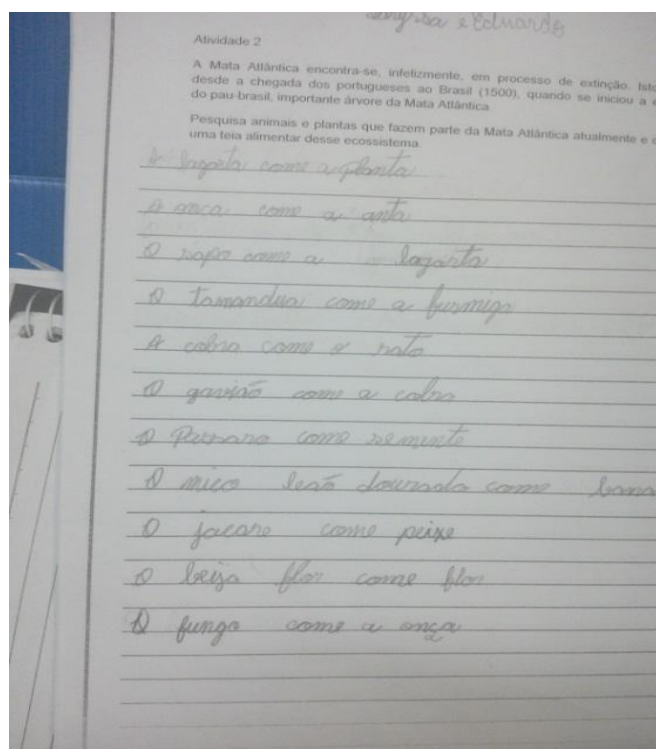 e Eduardo
Atividade 2
A Mata Atlântica encontra-se, infelizmente, em processo de extinção. Isto
desde a chegada dos portugueses ao Brasil (1500), quando se iniciou a e
do pau-brasil, importante árvore da Mata Atlântica
Pesquisa animais e plantas que fazem parte da Mata Atlântica atualmente e c
uma teia alimentar desse ecossistema.
A lagarta come a planta
A onca come a anta
O sapo come a lagarta
O tamandua come a furmiga
A cobra come o rato
O gavião come a cobra
O Passaro come semente
O mico leão dourado come bana
O jacare come peixe
O beija flor come flor
O fungo come a onça